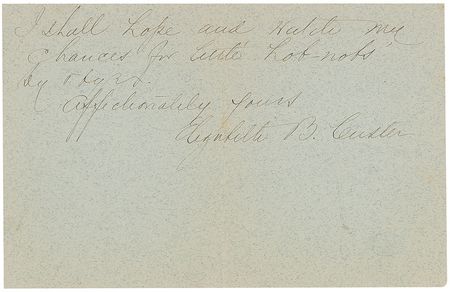 I shall hope and watch my
chances for little hob-nobs,
by
Affectionately yours
Elizabeth B. Custer